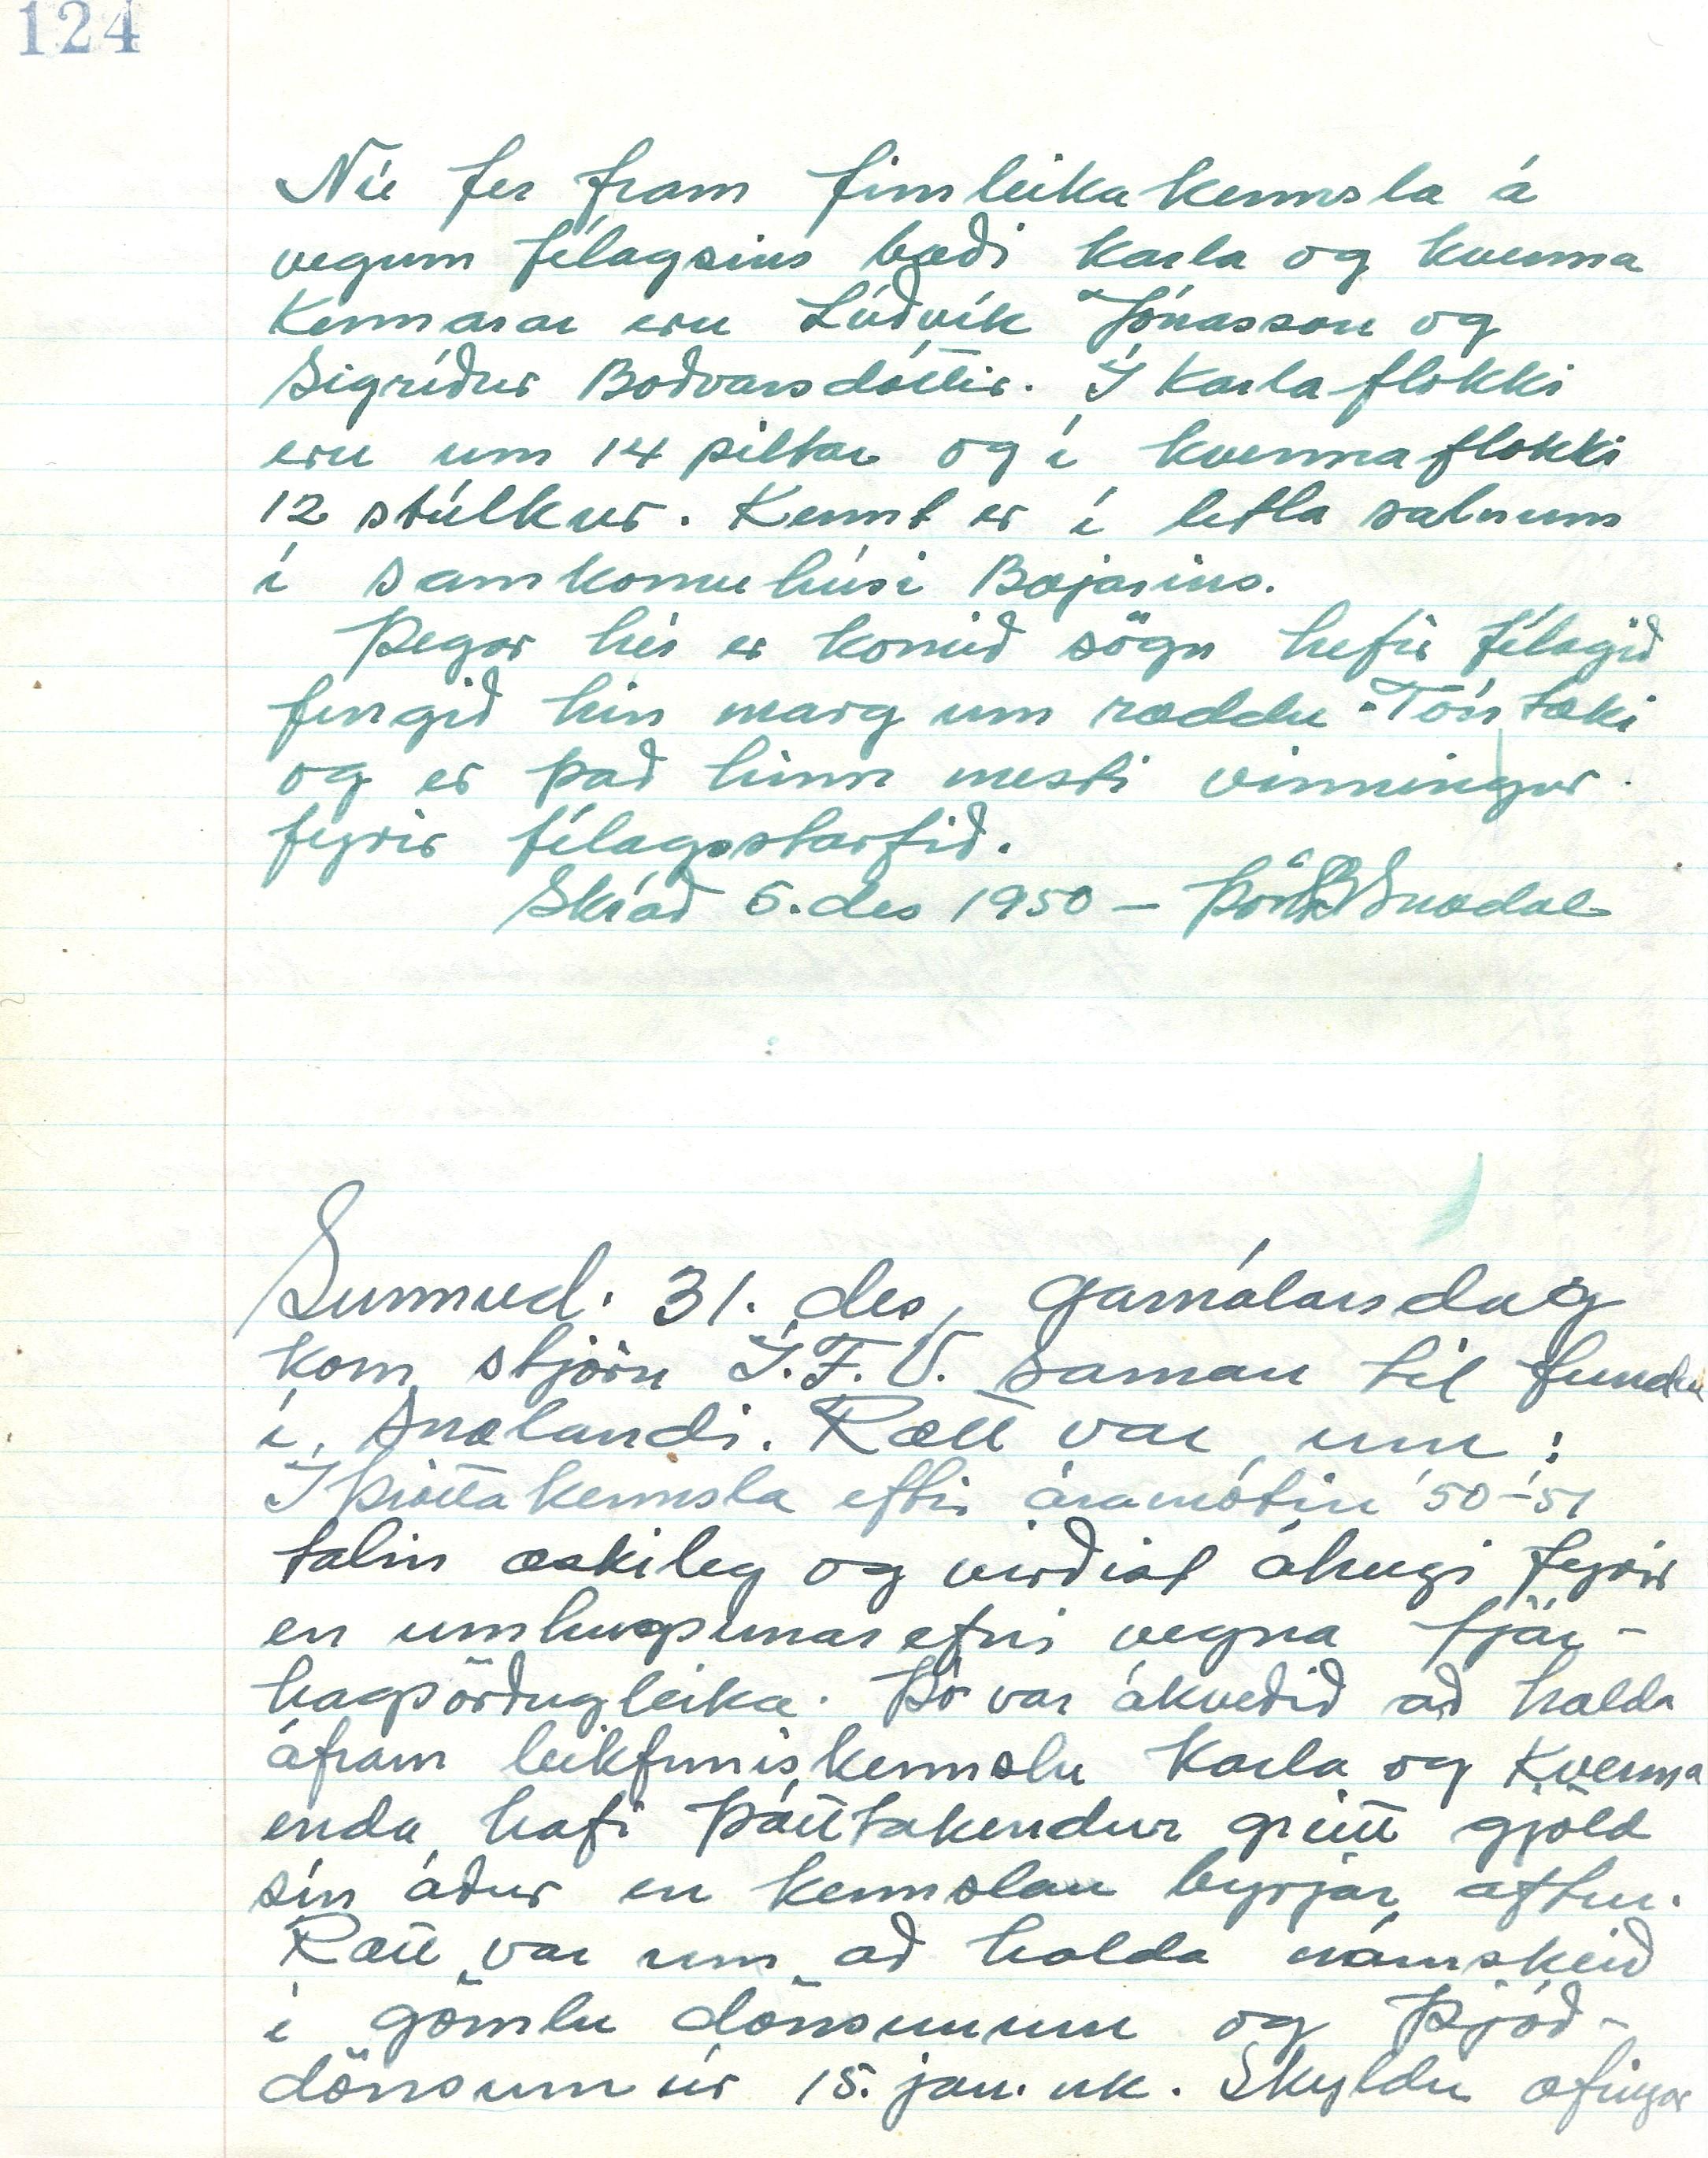 124
Nú fer fram fimleikakennsla á
vegum félagsins bæði karla og kvenna
Kennarar eru Lúðvík Jónasson og
Sigríður Boðvarsdóttir. Í Karlaflokki
eru um 14 piltar og í kvennaflokki
12 stúlkur. Kennt er í litla salnum
í samkomuhúsi Bæjarins.
Þegar hér er komið sögu hefir félagið
fengið hin marg um ræddu Tón tæki
og er það hinn mesti vinningur
fyrir félagsstarfið.
Skráð 5. des 1950 — Þór B Snædal
Sunnud. 31. des, gamálarsdag
kom stjórn Í.F.V. saman til fundar
í Snælandi. Rætt var um:
Íþróttakennsla eftir áramótin '50-'51
talin æskileg og virðist áhugi fyrir
en umhugsunarefni vegna fjár-
hagsörðugleika. Þó var ákveðið að halda
áfram leikfimiskennslu Karla og Kvenna
enda hafi Þátttakendur greitt gjöld
sín áður en kennslan byrjar aftur.
Rætt var um að halda námskeið
í gömlu dönsunum og Þjóð-
dönsum úr 15. jan. nk. Skyldu æfingar